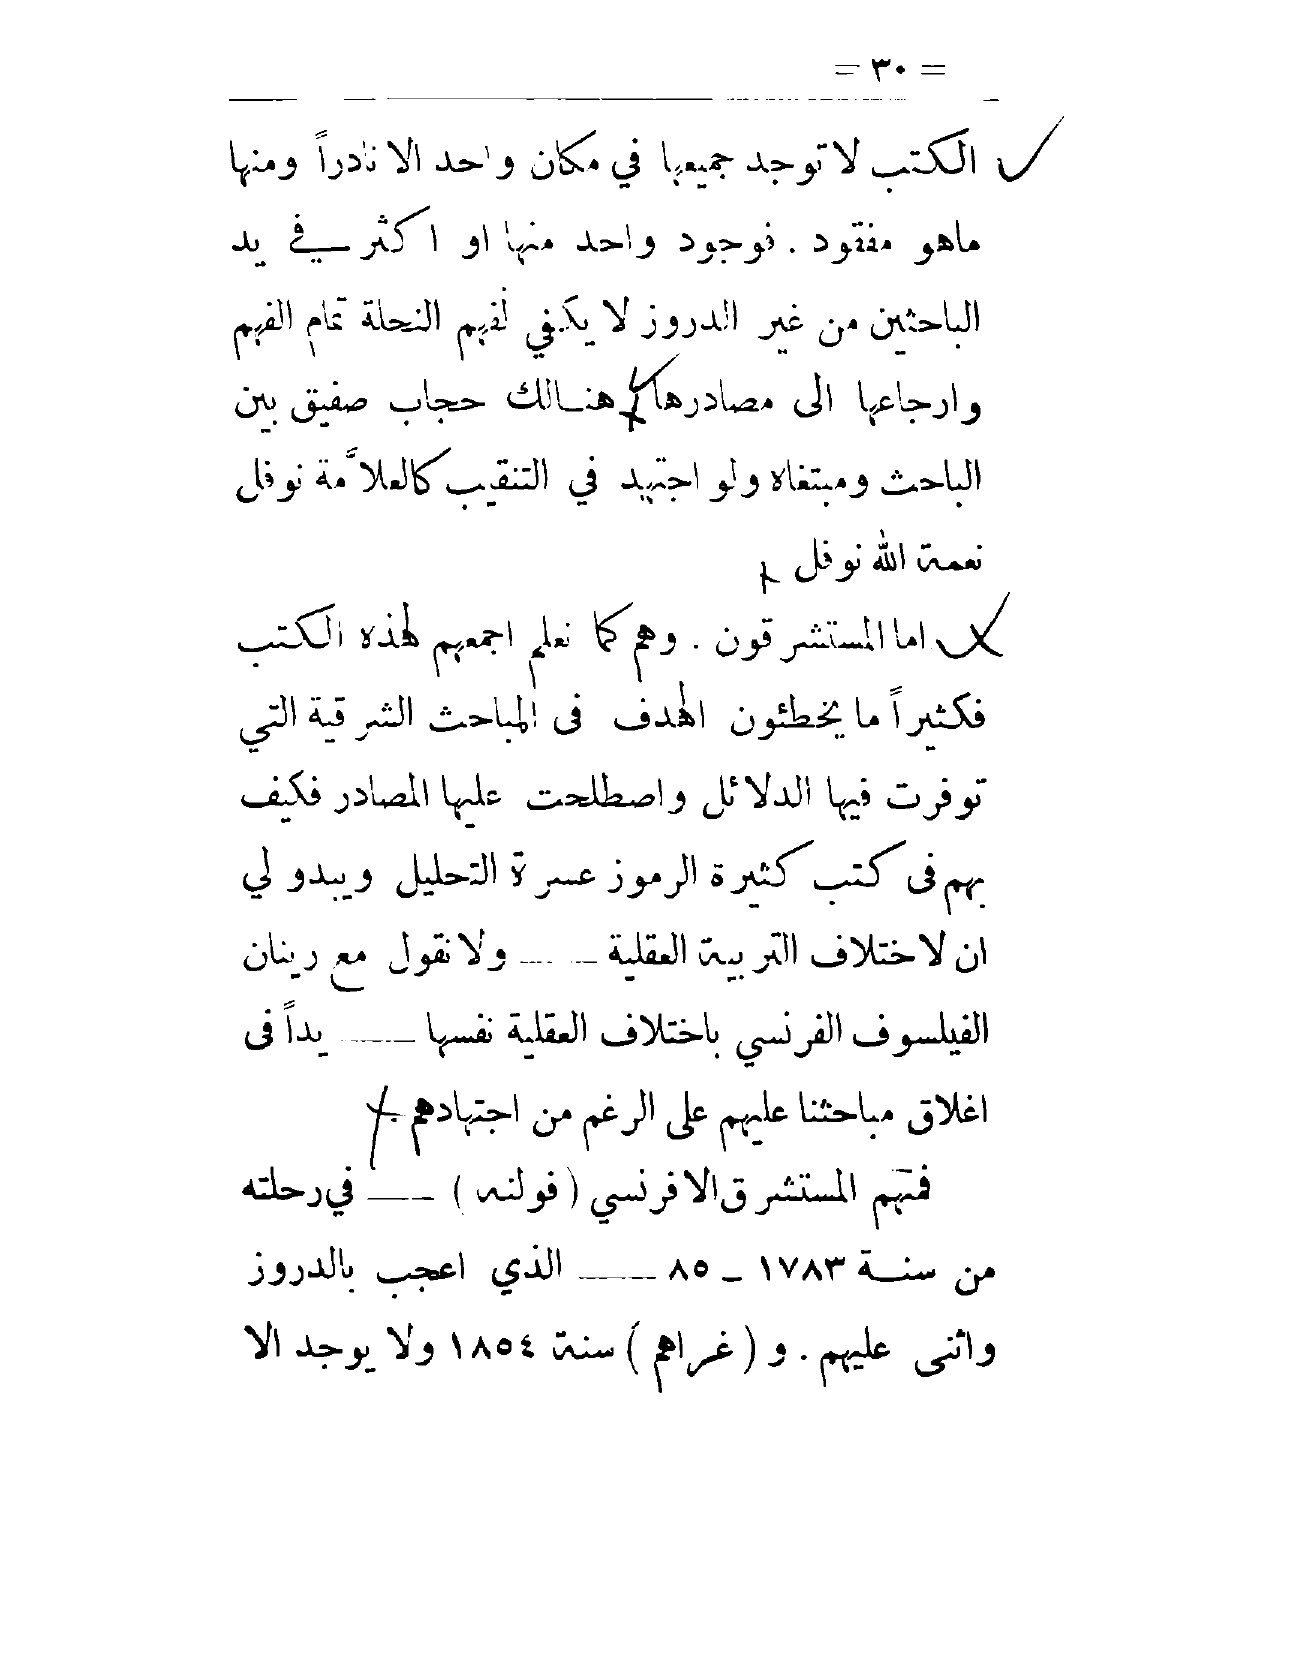 = ٣٠ =
الكتب لا توجد جميعها في مكان واحد الا نادراً ومنها
ماهو مفقود . فوجود واحد منها او اكثر في يد
الباحثين من غير الدروز لا يكفي لفهم النحلة تمام الفهم
وارجاعها الى مصادرها هنالك حجاب صفيق بين
الباحث ومبتغاه ولو اجتهد في التنقيب كالعلاّمة نوفل
نعمة الله نوفل
اما المستشرقون . وهم كما نعلم اجمعهم لهذه الكتب
فكثيراً ما يخطئون الهدف فى المباحث الشرقية التي
توفرت فيها الدلائل واصطلحت عليها المصادر فكيف
بهم فى كتب كثيرة الرموز عسرة التحليل ويبدو لي
ان لاختلاف التربية العقلية — ولا نقول مع رينان
الفيلسوف الفرنسي باختلاف العقلية نفسها — يداً فى
اغلاق مباحثنا عليهم على الرغم من اجتهادهم .
فمنهم المستشرق الافرنسي ( فولنه ) — في رحلته
من سنة ١٧٨٣ - ٨٥ — الذي اعجب بالدروز
واثنى عليهم . و ( غراهم ) سنة ١٨٥٤ ولا يوجد الا